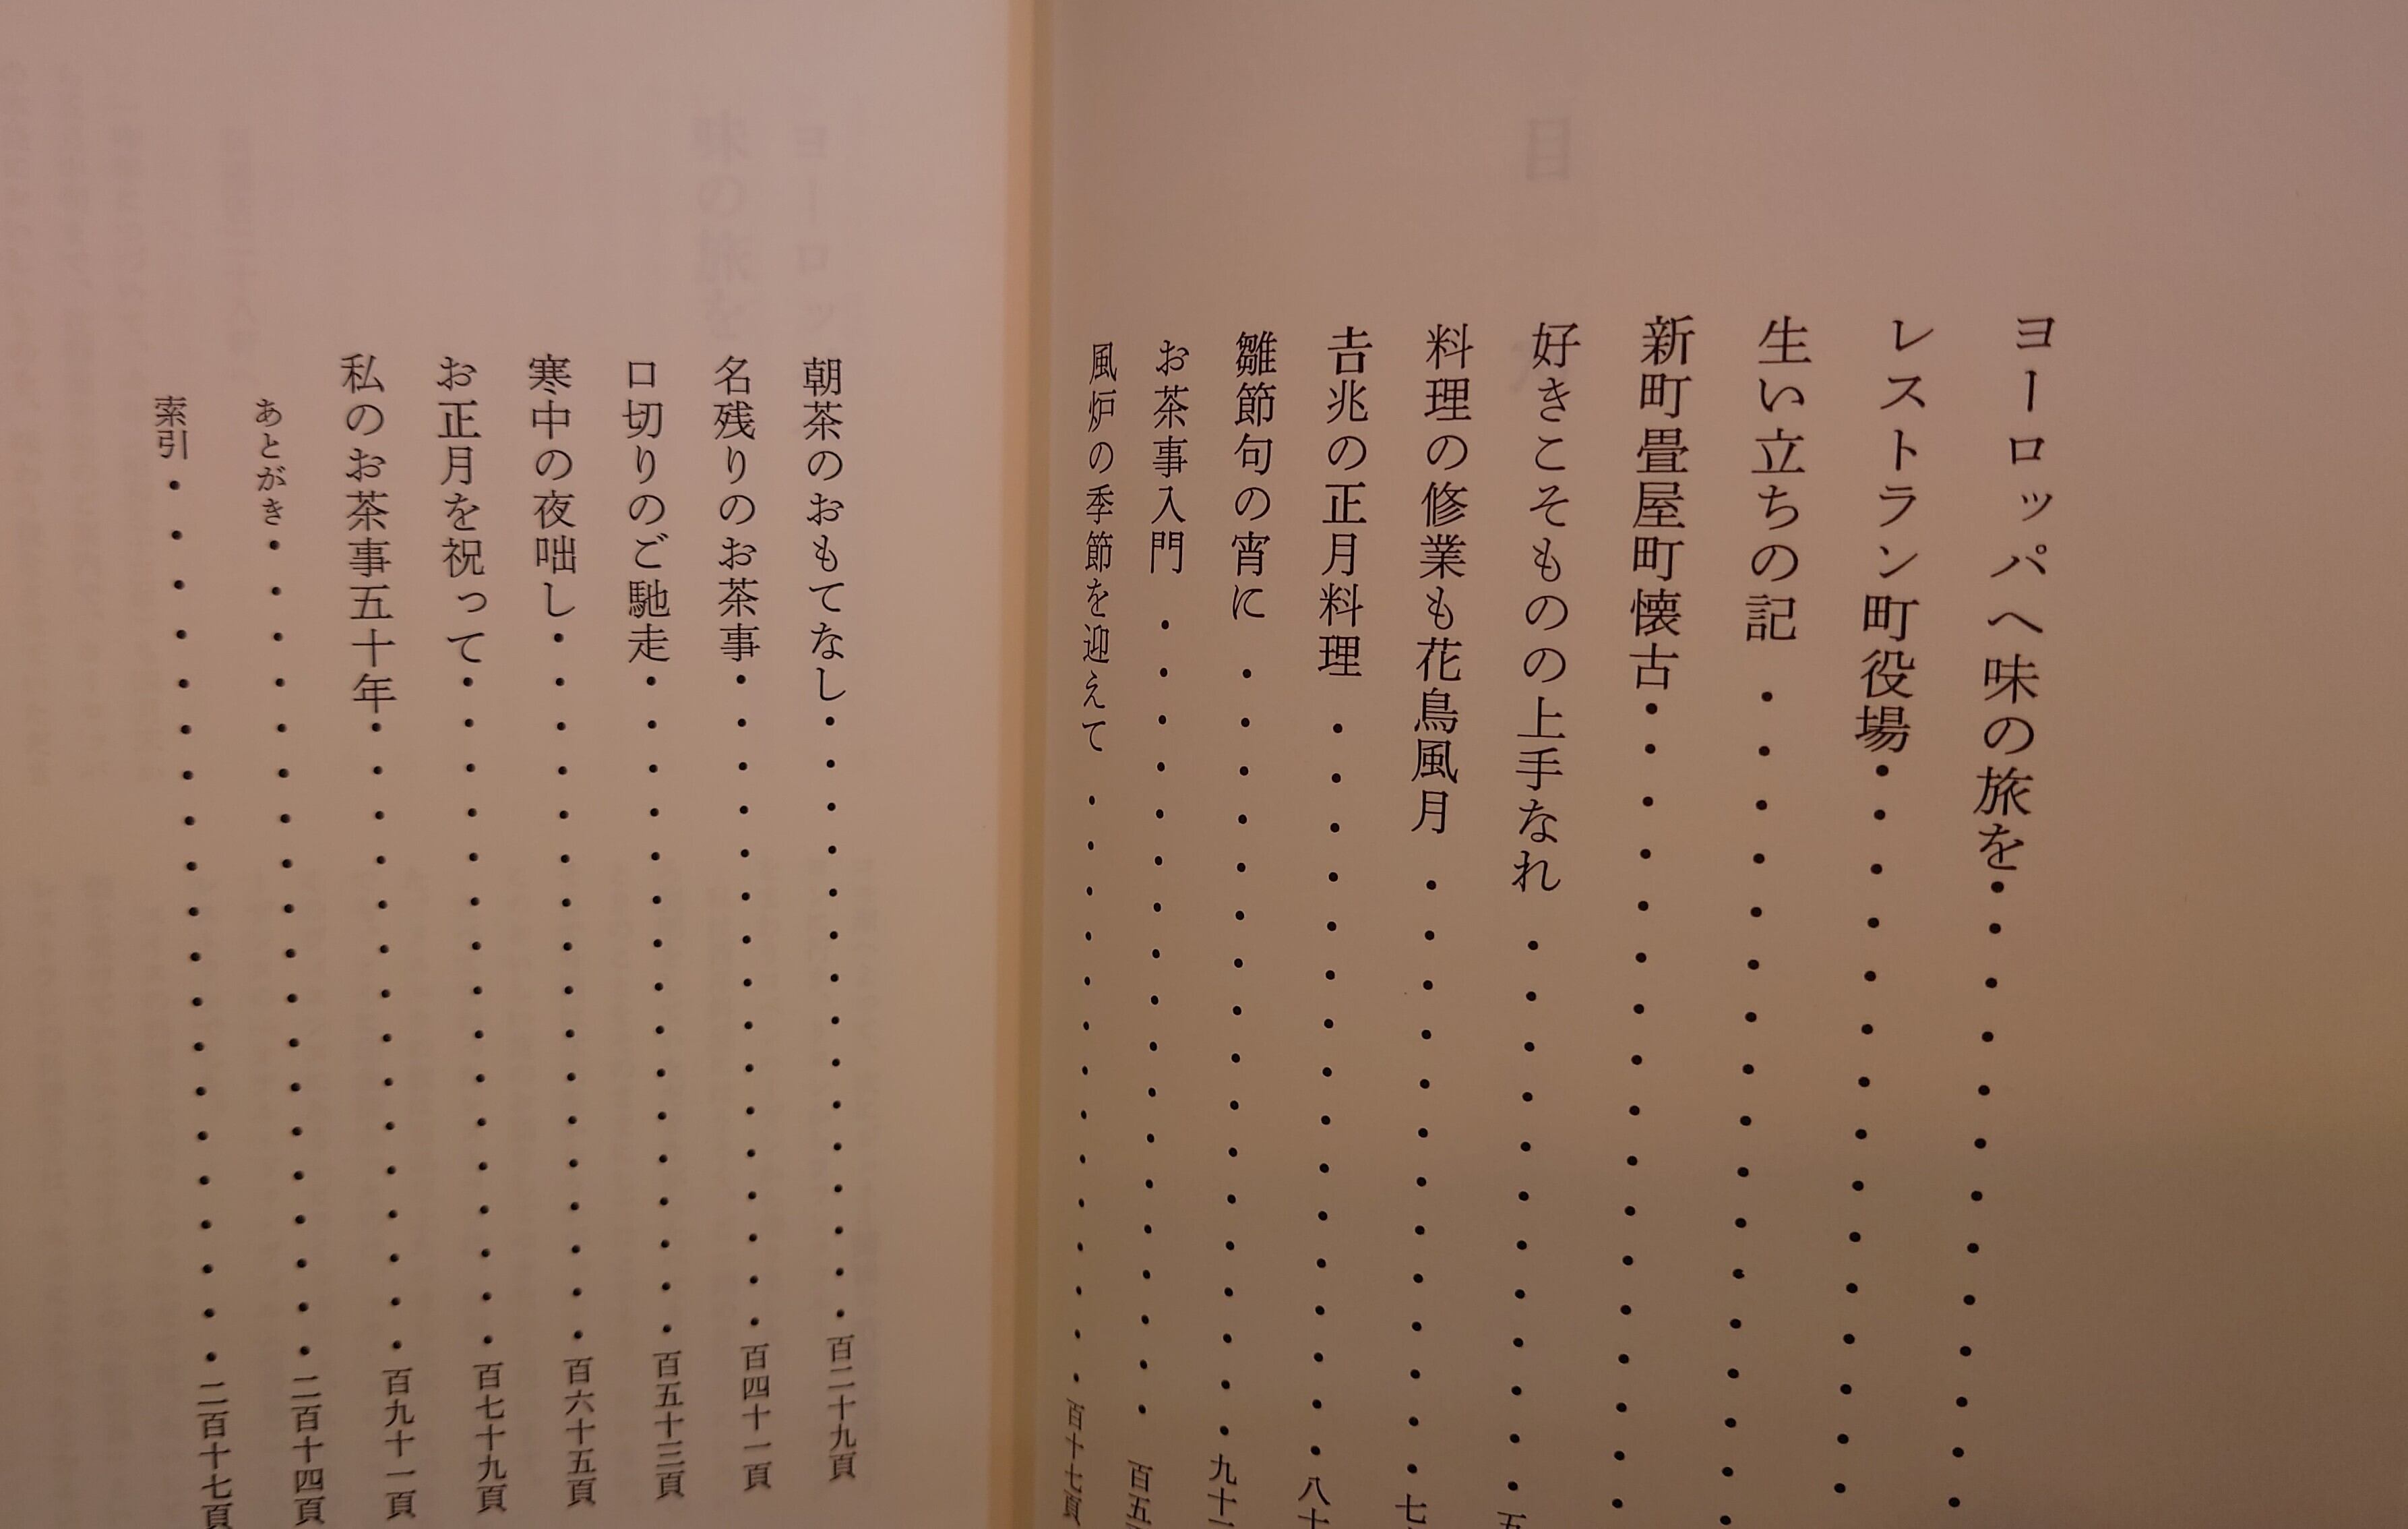 ヨーロッパへ味の旅を・・・・・・・・・・・・
レストラン町役場・・・・・・・・・・・・・・
生い立ちの記・・・・・・・・・・・・・・・・
新町畳屋町懐古・・・・・・・・・・・・・・・・
好きこそものの上手なれ・・・・・・・・・・・・
料理の修業も花鳥風月・・・・・・・・・・・・・七
𠮷兆の正月料理・・・・・・・・・・・・・・・・八十
雛節句の宵に・・・・・・・・・・・・・・・・・九十
お茶事入門・・・・・・・・・・・・・・・・・・百五
風炉の季節を迎えて・・・・・・・・・・・・・・百十七頁
朝茶のおもてなし・・・・・・・・・・・・・・・百二十九頁
名残りのお茶事・・・・・・・・・・・・・・・・百四十一頁
口切りのご馳走・・・・・・・・・・・・・・・・百五十三頁
寒中の夜咄し・・・・・・・・・・・・・・・・・百六十五頁
お正月を祝って・・・・・・・・・・・・・・・・百七十九頁
私のお茶事五十年・・・・・・・・・・・・・・・百九十一頁
あとがき・・・・・・・・・・・・・・・・・・・二百十四頁
索引・・・・・・・・・・・・・・・・・・・・・二百十七頁